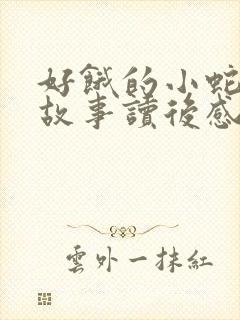 好餓的小蛇
故事讀後感
雲外一抹紅